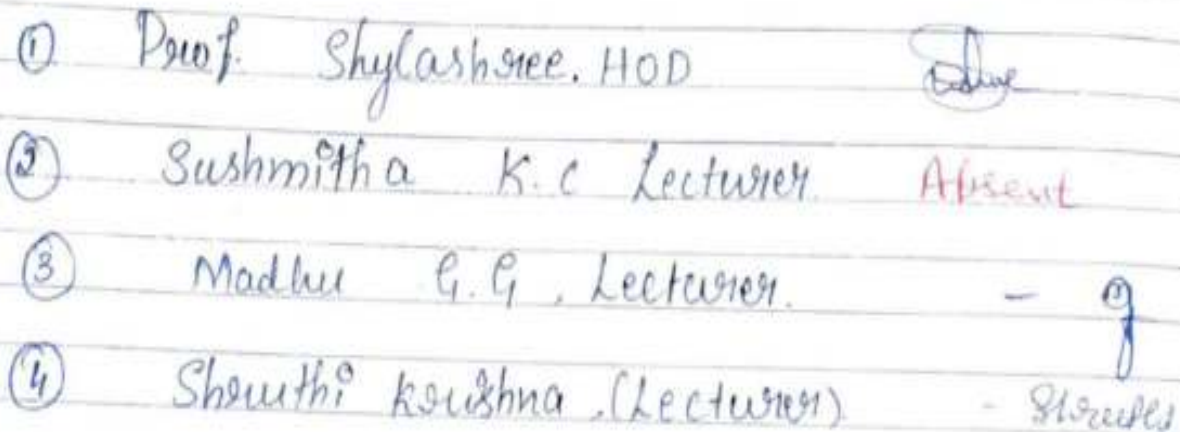 ① Prof. Shylashree. HOD
② Sushmitha K.C Lecturer. Absent
③ Madhu G.G. Lecturer. -
④ Shruthi Krishna. (Lecturer) - Shruthi